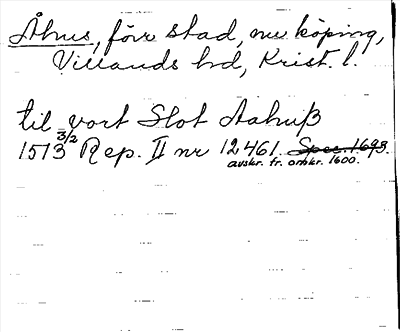 Åhus, förr stad, nu köping,
Villands hd, Krist. l.
til vort Slot Aahuß
1513 3/2 Rep. II nr 12461. Spec. 1693.
avskr. fr. omkr. 1600.